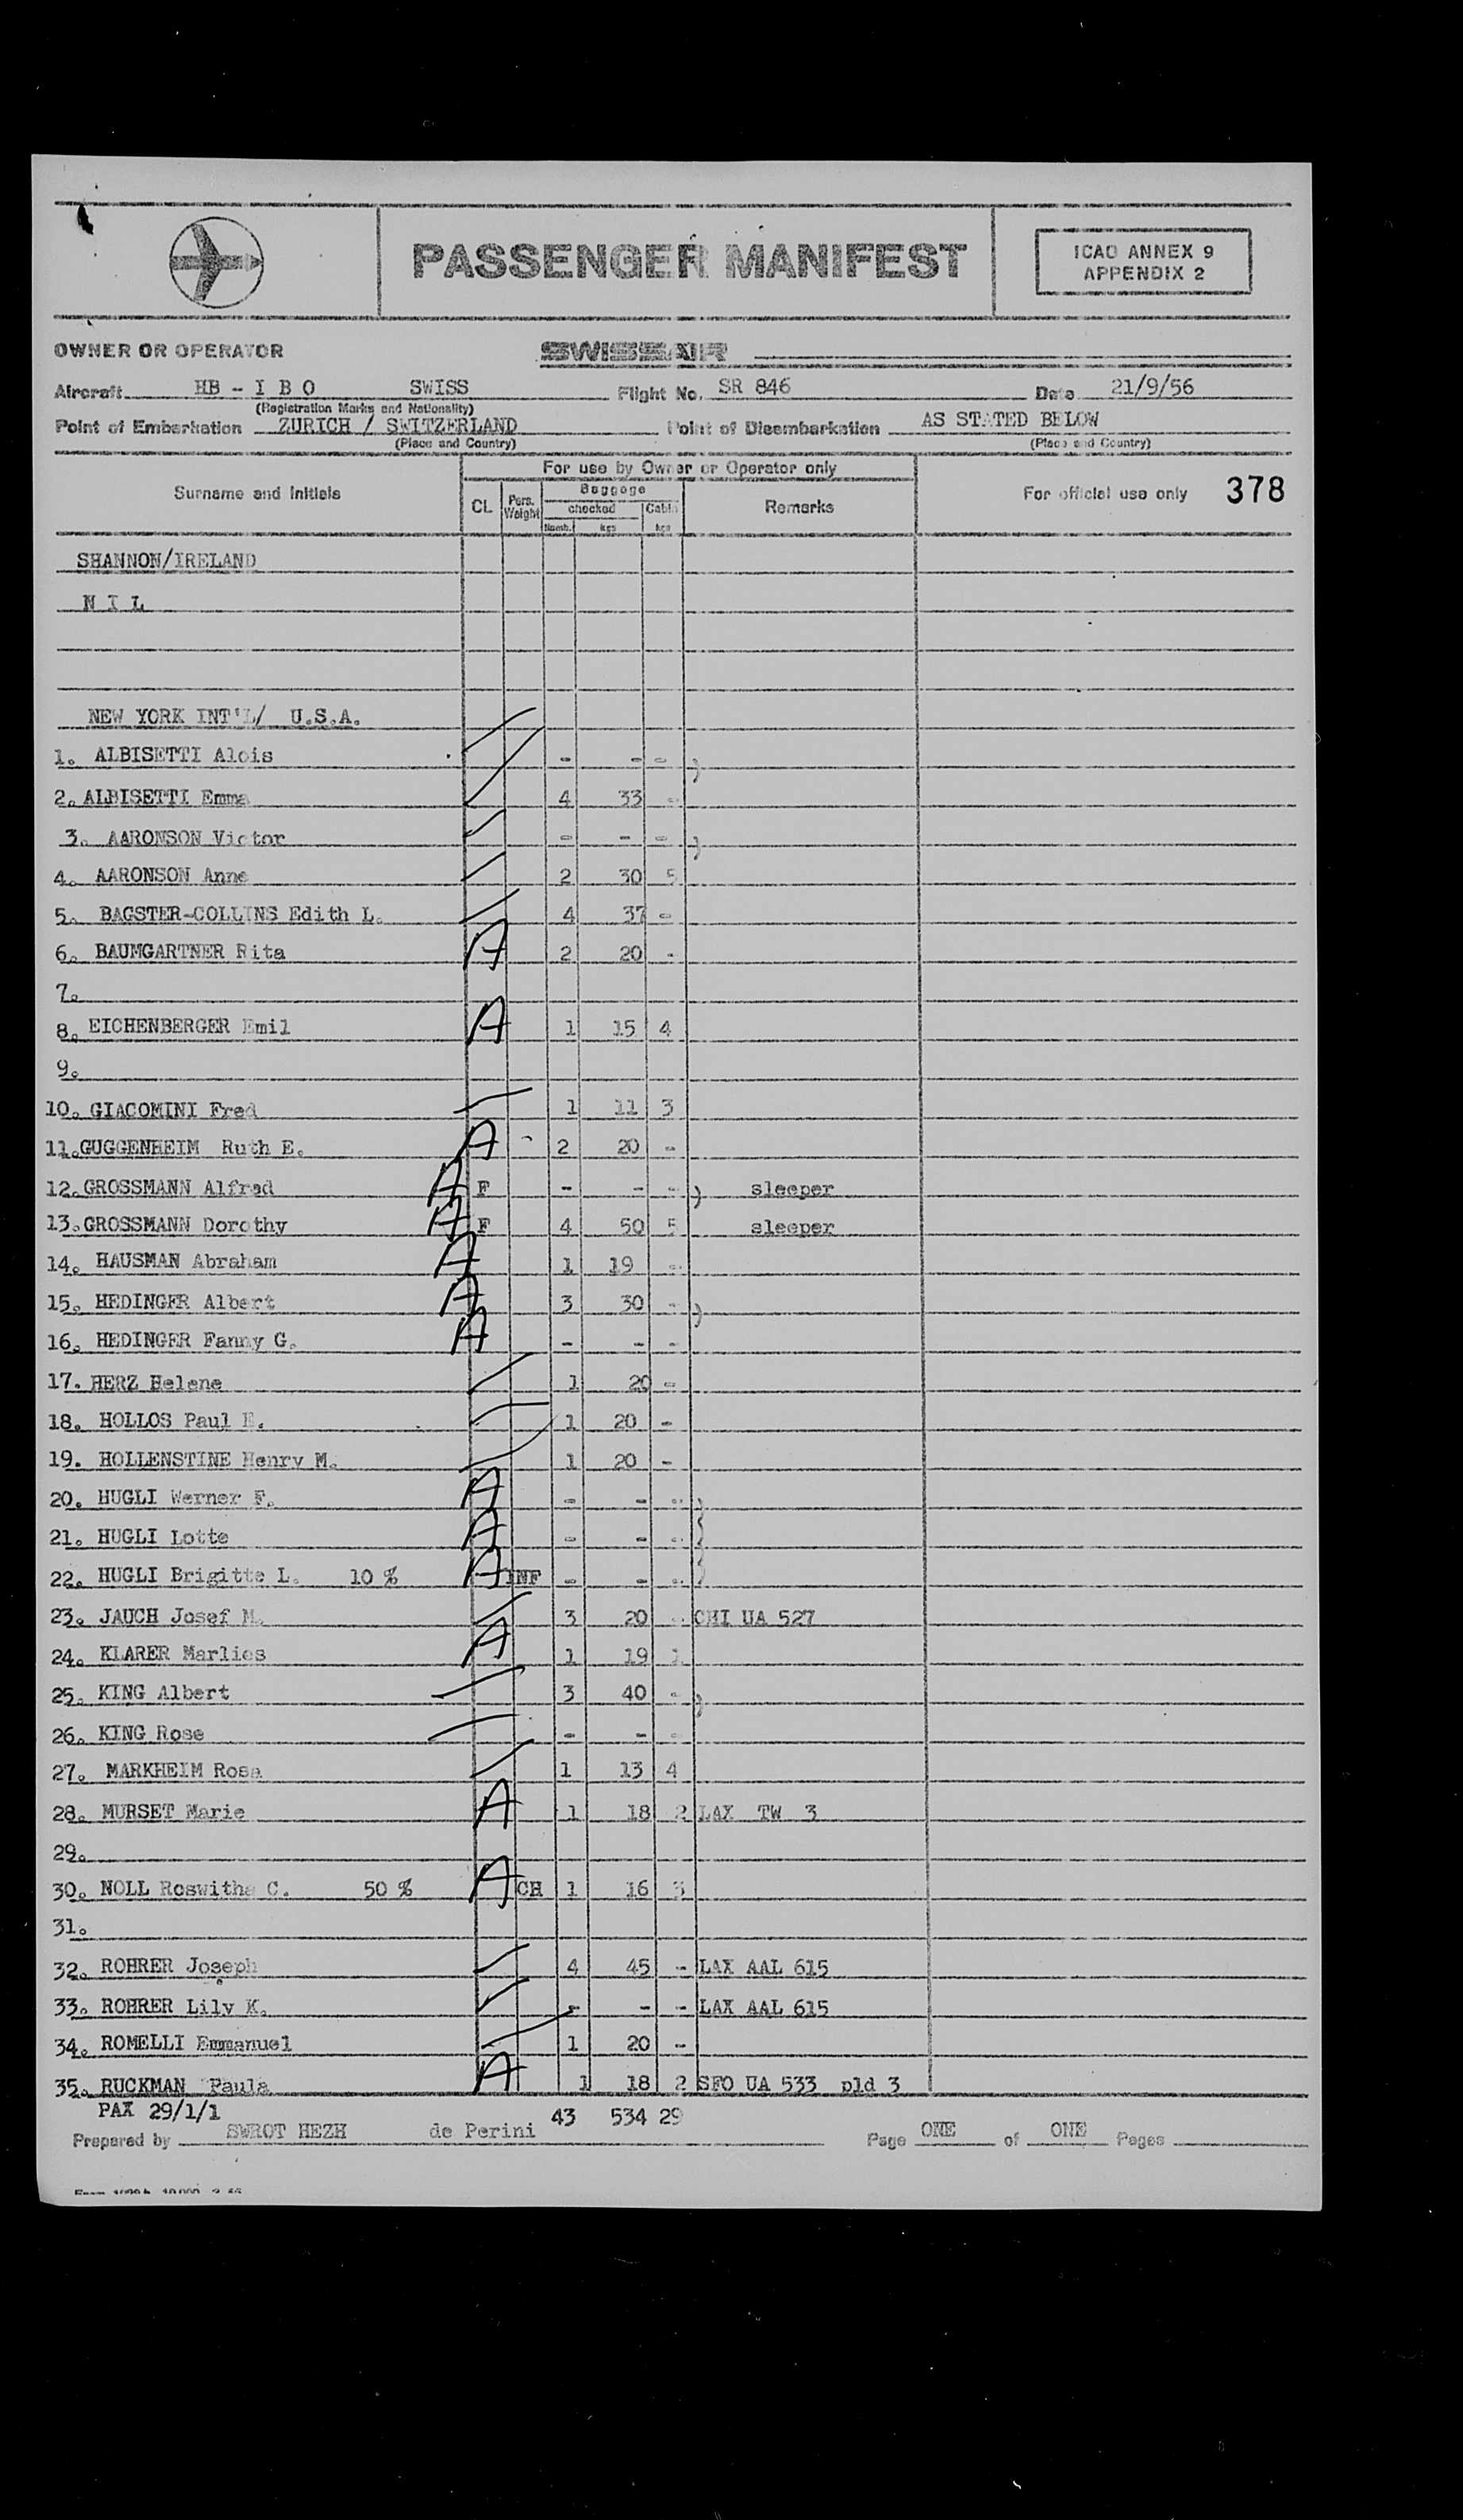 PASSENGER MANIFEST
ICAO ANNEX 9
APPENDIX 2
OWNER OR OPERATOR SWISSAIR
Aircraft HB - I B O SWISS Flight No. SR 846 Date 21/9/56
(Registration Marks and Nationality)
Point of Embarkation ZURICH / SWITZERLAND Point of Disembarkation AS STATED BELOW
(Place and Country) (Place and Country)
Surname and Initials For use by Owner or Operator only For official use only 378
CL Pers. Weight Baggage Remarks
checked Cabin
Numb. kgs kgs
SHANNON/IRELAND
N I L
NEW YORK INT'L/ U.S.A.
1. ALBISETTI Alois - - - )
2. ALBISETTI Emma 4 33 -
3. AARONSON Victor - - - )
4. AARONSON Anne 2 30 5
5. BAGSTER-COLLINS Edith L. 4 37 -
6. BAUMGARTNER Rita A 2 20 -
7.
8. EICHENBERGER Emil A 1 15 4
9.
10. GIACOMINI Fred 1 11 3
11. GUGGENHEIM Ruth E. A 2 20 -
12. GROSSMANN Alfred A F - - - ) sleeper
13. GROSSMANN Dorothy A F 4 50 5 sleeper
14. HAUSMAN Abraham A 1 19 -
15. HEDINGER Albert A 3 30 - )
16. HEDINGER Fanny G. A - - -
17. HERZ Helene 1 20 -
18. HOLLOS Paul E. 1 20 -
19. HOLLENSTINE Henry M. 1 20 -
20. HUGLI Werner F. A - - - )
21. HUGLI Lotte A - - - )
22. HUGLI Brigitte L. 10 % A INF - - - )
23. JAUCH Josef M. 3 20 - CHI UA 527
24. KLARER Marlies A 1 19 1
25. KING Albert 3 40 - )
26. KING Rose - - -
27. MARKHEIM Rosa 1 13 4
28. MURSET Marie A 1 18 2 LAX TW 3
29.
30. NOLL Roswitha C. 50 % A CH 1 16 3
31.
32. ROHRER Joseph 4 45 - LAX AAL 615
33. ROHRER Lily K. - - - LAX AAL 615
34. ROMELLI Emmanuel 1 20 -
35. RUCKMAN Paula A 1 18 2 SFO UA 533 pld 3
PAX 29/1/1 43 534 29
Prepared by SWROT HEZH de Perini Page ONE of ONE Pages